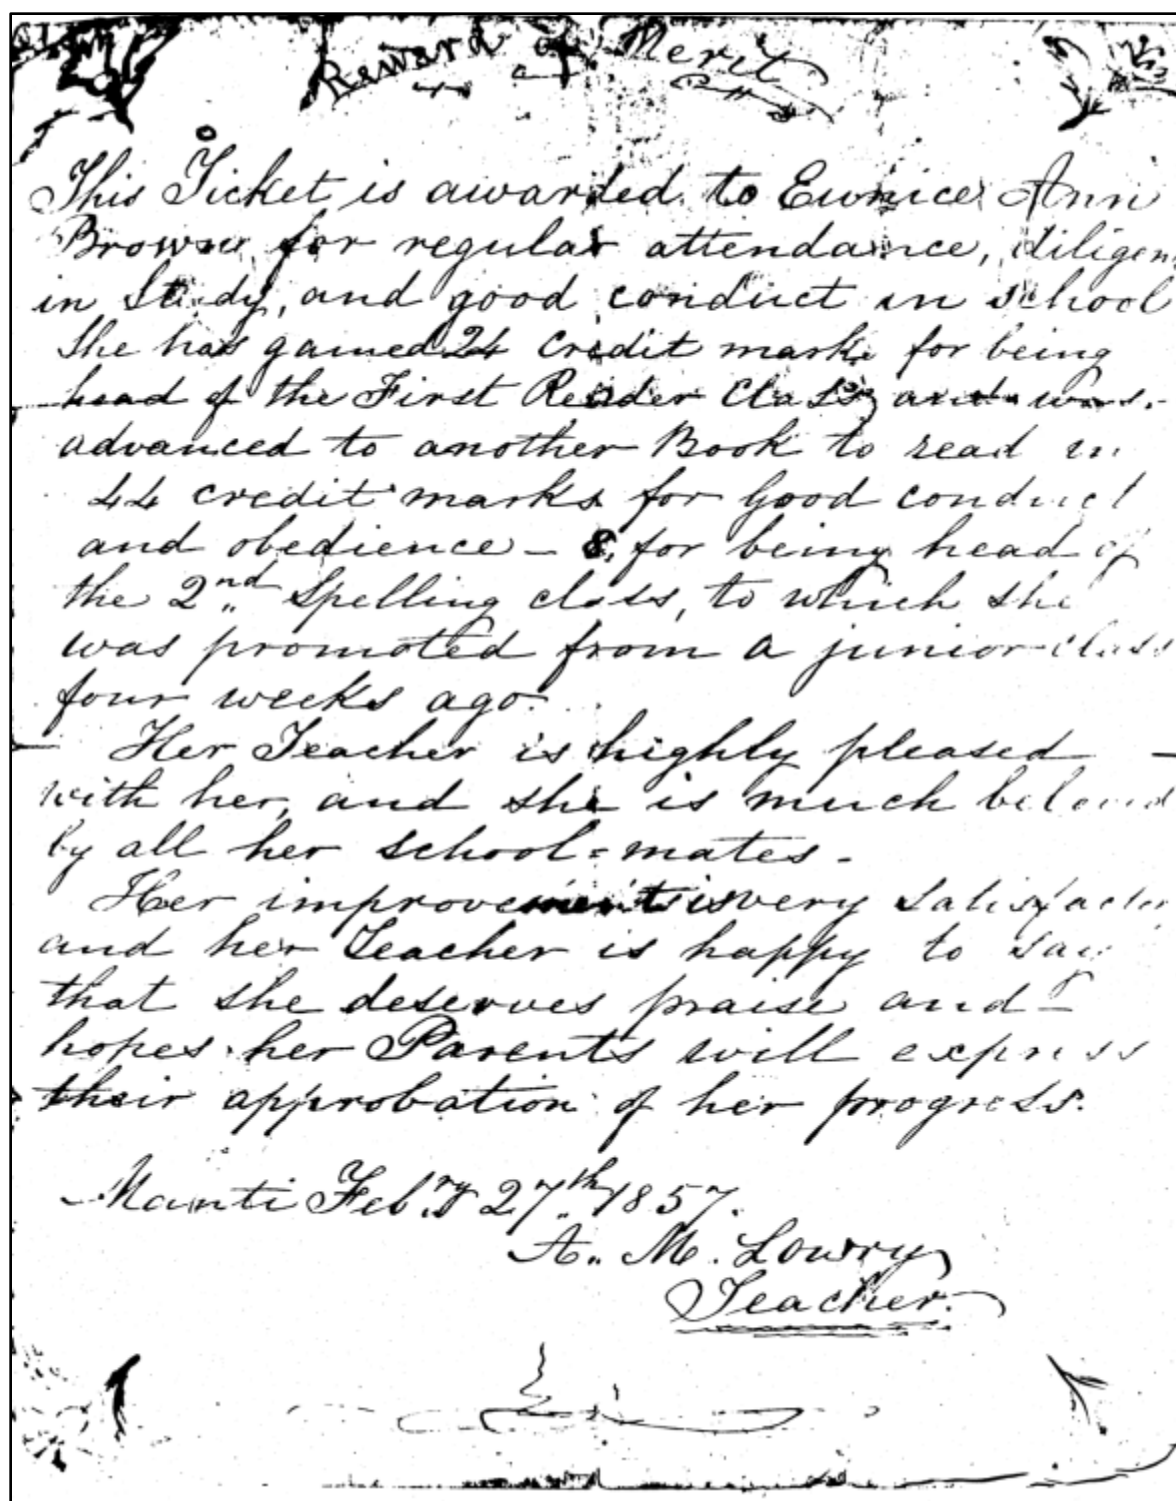 Reward of Merit.
This Ticket is awarded to Eunice Ann
Brown, for regular attendance, diligen
in Study, and good conduct in school
She has gained 24 credit marks for being
head of the First Reader Class, and was
advanced to another Book to read in
44 credit marks for good conduct
and obedience - 8, for being head of
the 2nd Spelling class, to which she
was promoted from a junior class
four weeks ago.
Her Teacher is highly pleased -
with her, and she is much beloved
by all her school=mates -
Her improvement is very satisfactor
and her Teacher is happy to say
that she deserves praise and -
hopes her Parents will express
their approbation of her progress.
Manti Feb.ry 27th 1857.
A. M. Lowry
Teacher.